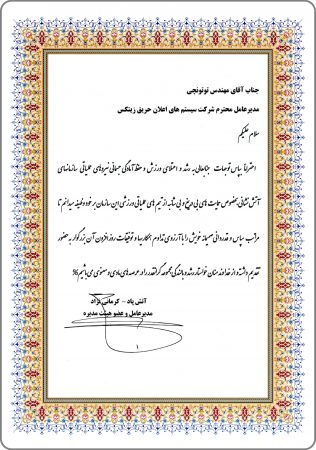 جناب آقای مهندس توتونچی
مدیرعامل محترم شرکت سیستم های اعلان حریق زیتکس
سلام علیکم
احتراماً بپاس توجهات جنابعالی به رشد و اعتلای ورزش و حفظ آمادگی جسمانی نیروهای عملیاتی سازمانهای
آتش نشانی بخصوص حمایت های بی دریغ و بی شائبه از تیم های عملیاتی ورزشی این سازمان بر خود وظیفه میدانم تا
مراتب سپاس و قدردانی صمیمانه خویش را با آرزوی تداوم همکاریها و توفیقات روزافزون آن بزرگوار به حضور
تقدیم داشته و از خداوند منان خواستار رشد و بالندگی مجموعه گرانقدر در عرصه های مادی و معنوی می باشیم
آتش پاد - کرمانی نژاد
مدیرعامل و عضو هیئت مدیره